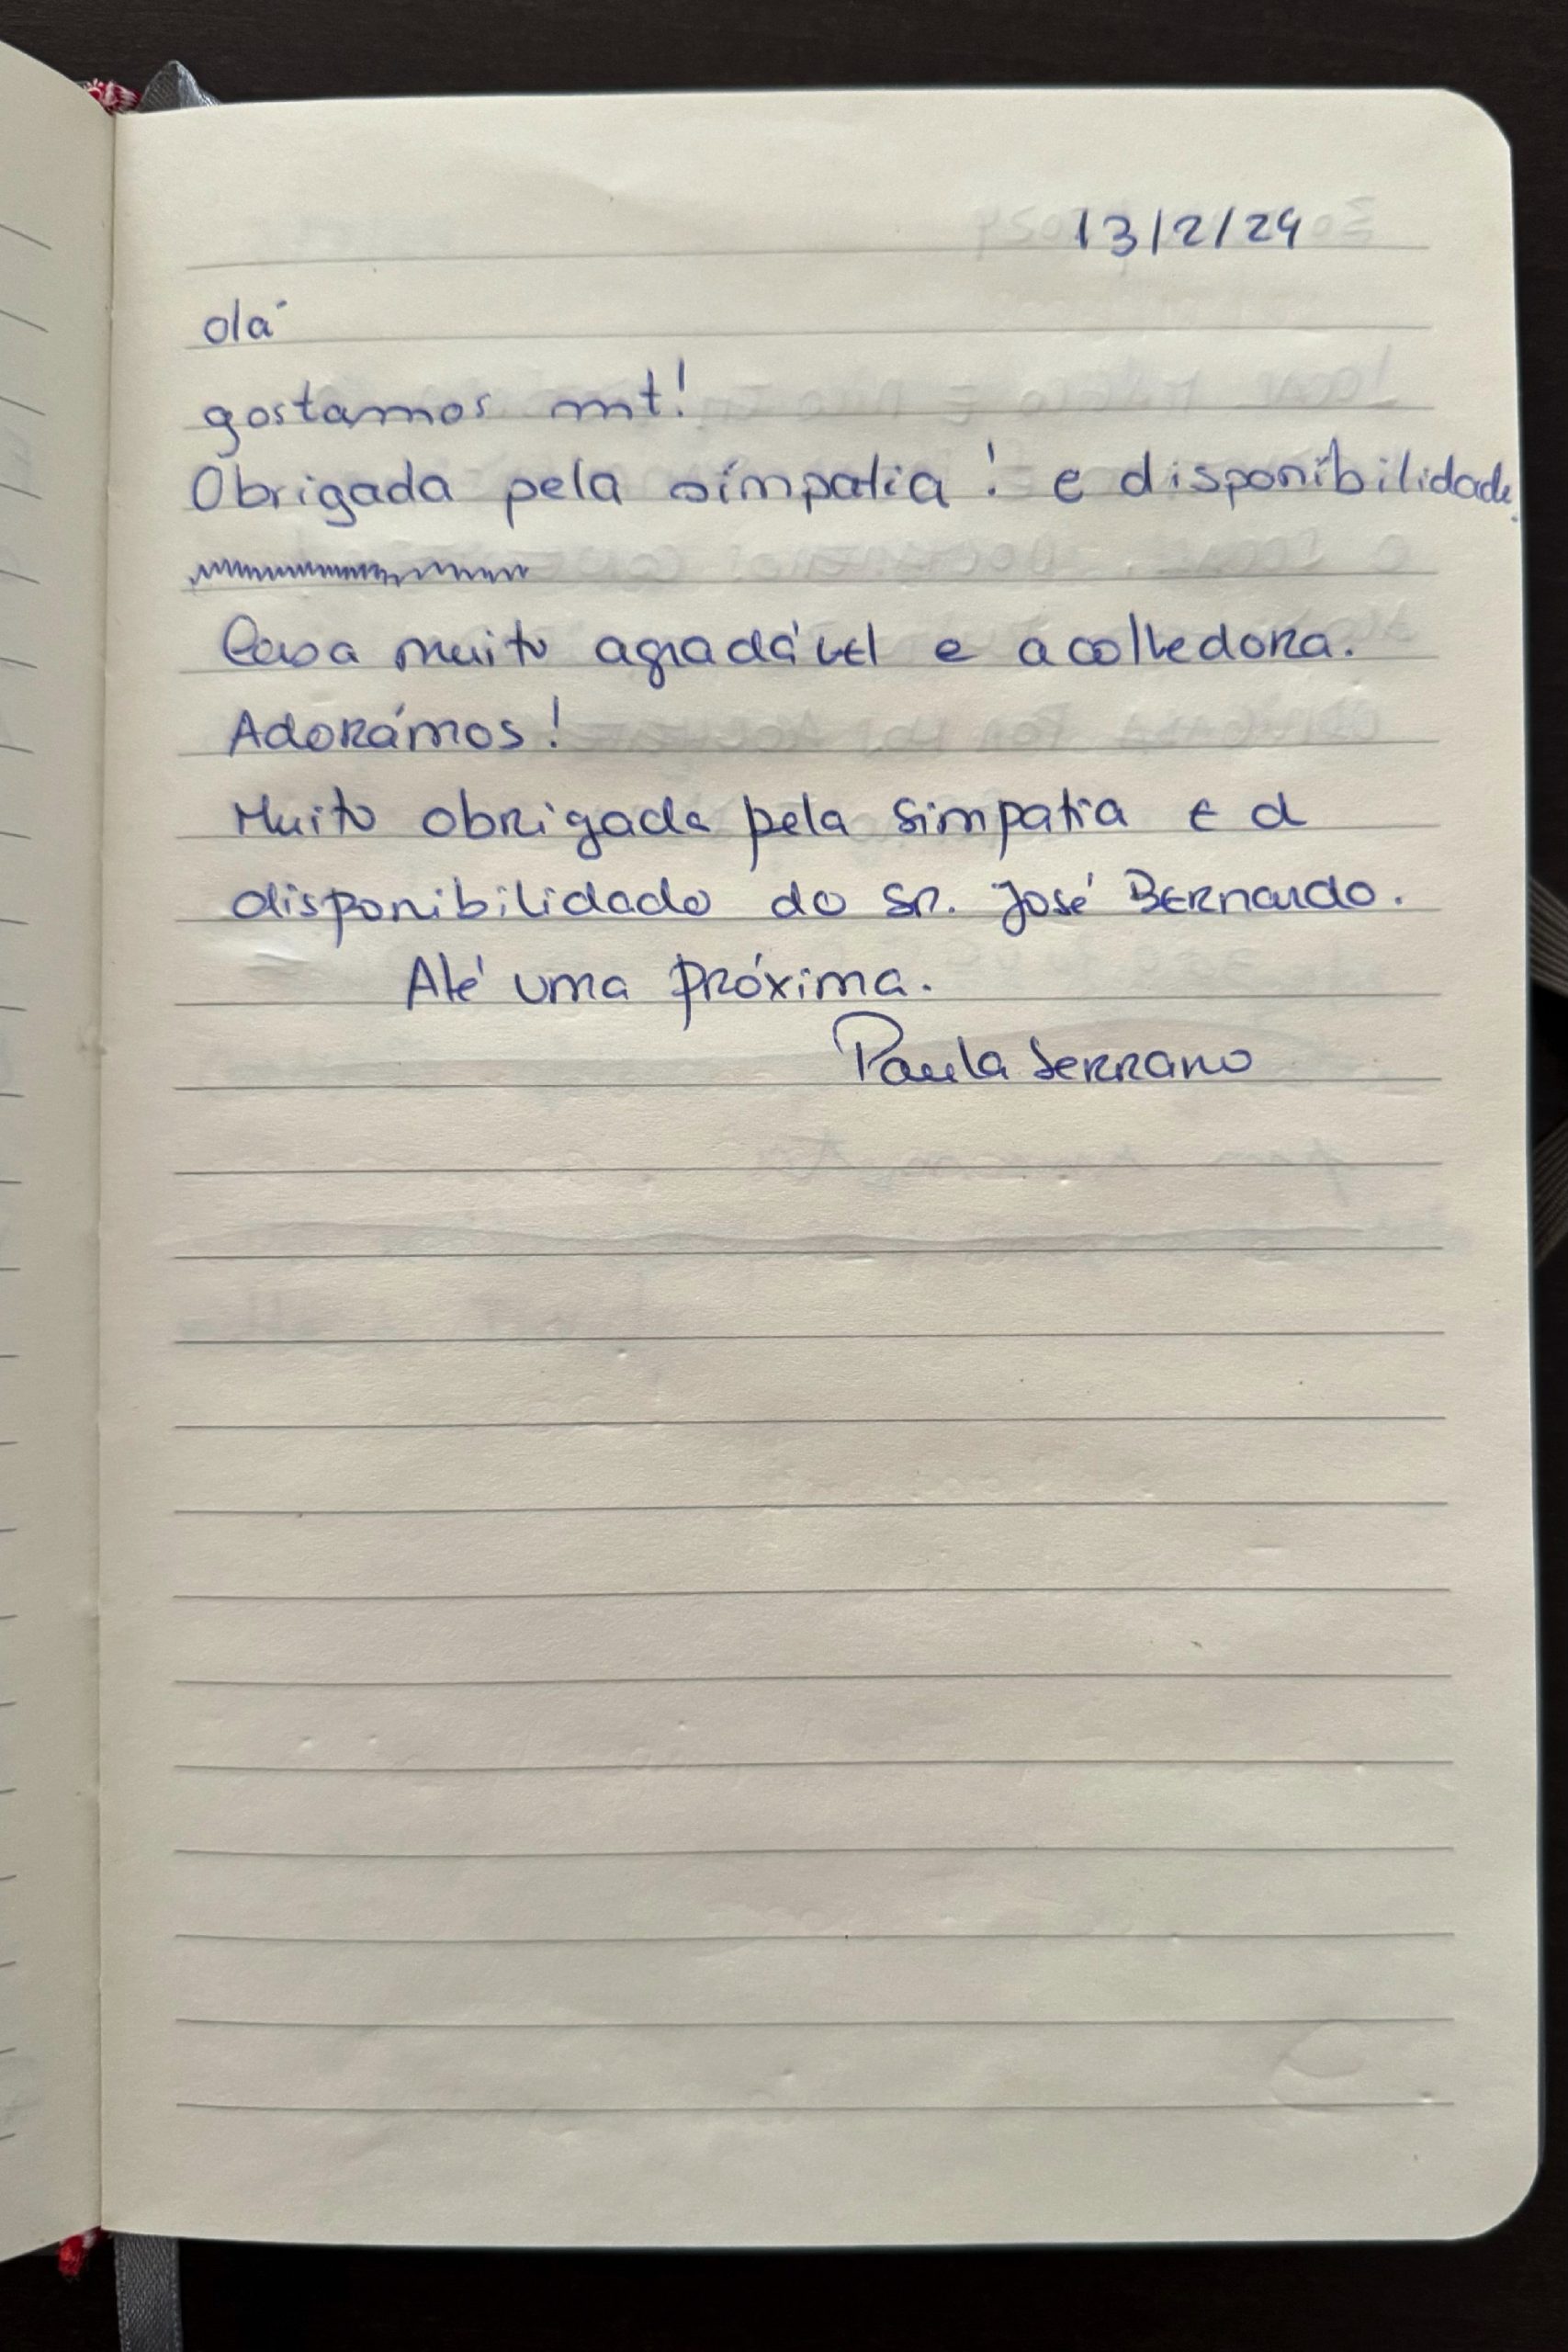 13/2/24
olá
gostamos mt!
Obrigada pela simpatia! e disponibilidade.
Casa muito agradável e acolhedora.
Adorámos!
Muito obrigada pela simpatia e a
disponibilidade do Sr. José Bernardo.
Até uma próxima.
Paula Serrano